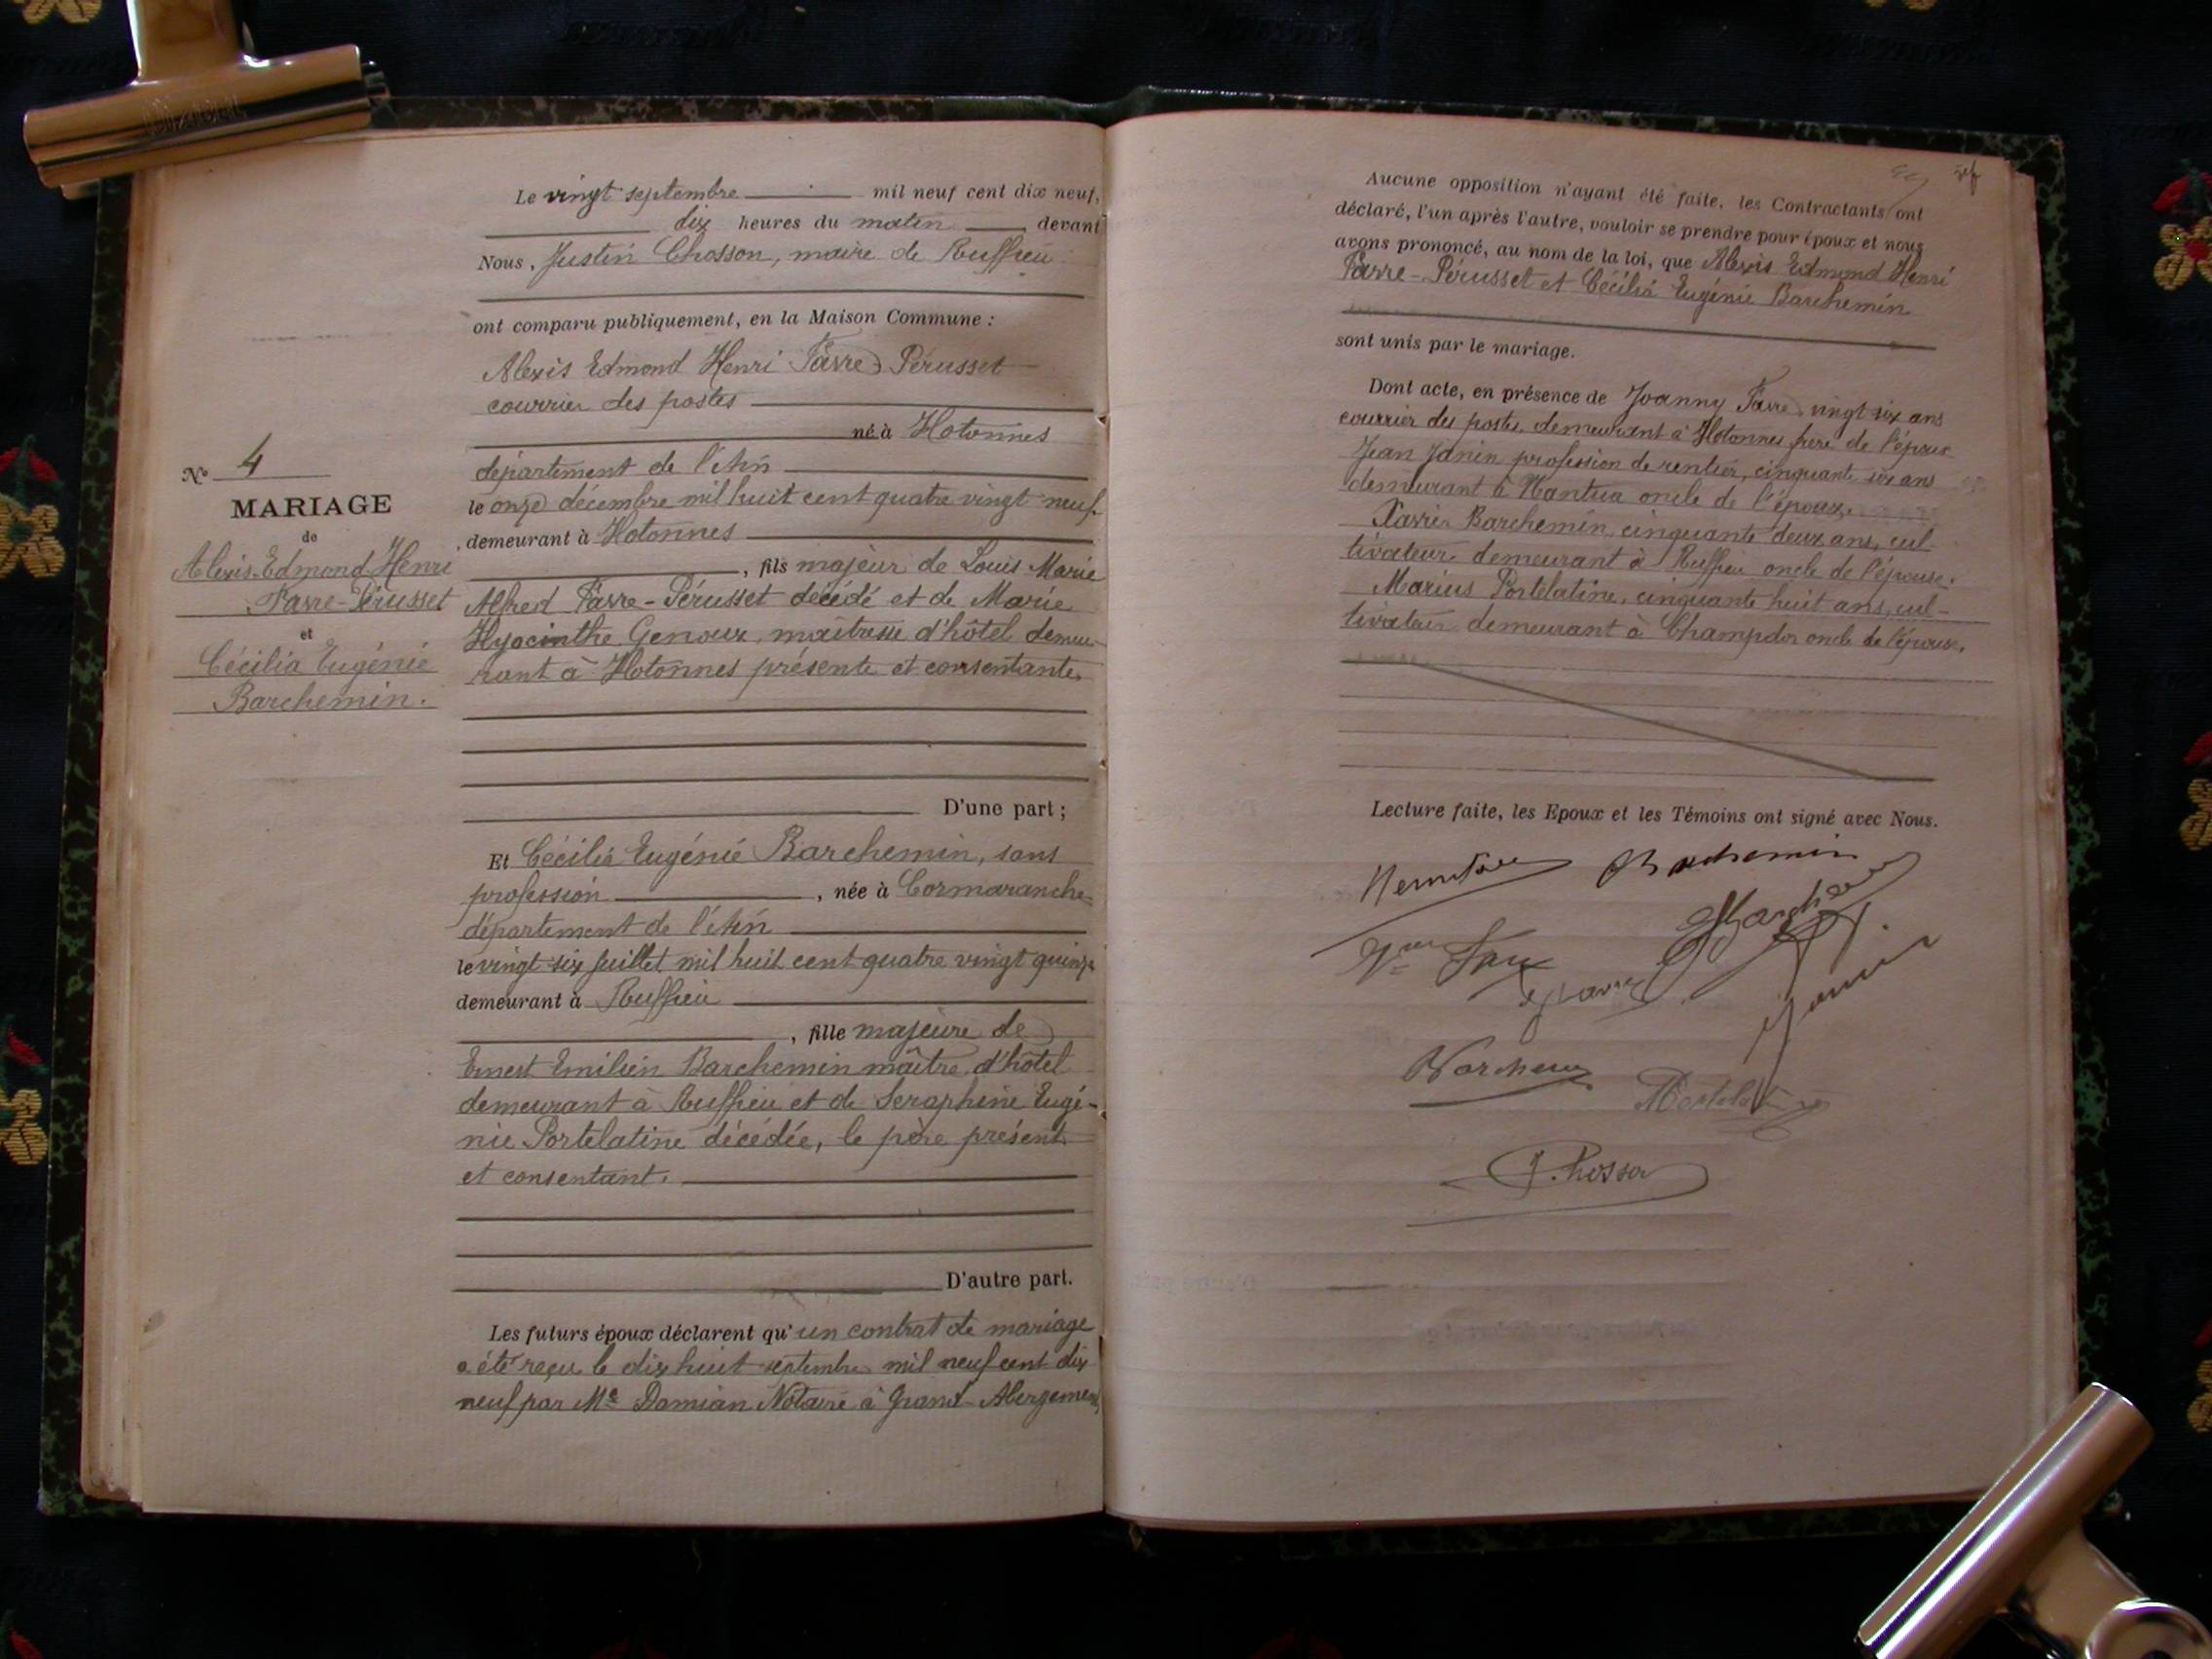 Le vingt septembre mil neuf cent dix neuf,
dix heures du matin devant
Nous, Justin Chosson, maire de Ruffieu
ont comparu publiquement, en la Maison Commune :
Alexis Edmond Henri Favre Pérusset
courrier des postes
né à Hotonnes
département de l'Ain
le onze décembre mil huit cent quatre vingt neuf
demeurant à Hotonnes
, fils majeur de Louis Marie
Alfred Favre-Pérusset décédé et de Marie
Hyacinthe Genoux, maîtresse d'hôtel demeu-
rant à Hotonnes présente et consentante.
D'une part ;
Et Cécilia Eugénie Barchemin, sans
profession , née à Cormaranche
département de l'Ain
le vingt six Juillet mil huit cent quatre vingt quinze
demeurant à Ruffieu
, fille majeure de
Ernest Emilien Barchemin maître d'hôtel
demeurant à Ruffieu et de Seraphine Eugé-
nie Portelatine décédée, le père présent
et consentant.
D'autre part.
Les futurs époux déclarent qu'un contrat de mariage
a été reçu le dix huit septembre mil neuf cent dix
neuf par Me Damian Notaire à Grand-Abergement
N° 4
MARIAGE
de
Alexis Edmond Henri
Favre-Pérusset
et
Cécilia Eugénie
Barchemin.
Aucune opposition n'ayant été faite, les Contractants ont
déclaré, l'un après l'autre, vouloir se prendre pour époux et nous
avons prononcé, au nom de la loi, que Alexis Edmond Henri
Favre-Pérusset et Cécilia Eugénie Barchemin
sont unis par le mariage.
Dont acte, en présence de Joanny Favre, vingt six ans
courrier des postes demeurant à Hotonnes frère de l'époux
Jean Janin profession de rentier, cinquante six ans
demeurant à Nantua oncle de l'époux.
Xavier Barchemin, cinquante deux ans, cul-
tivateur demeurant à Ruffieu oncle de l'épouse.
Marius Portelatine, cinquante huit ans, cul-
tivateur demeurant à Champdor oncle de l'épouse.
Lecture faite, les Epoux et les Témoins ont signé avec Nous.
Barchemin
J. Chosson